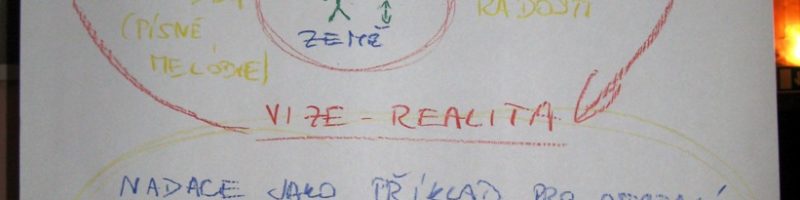 RADOSTI
(PÍSNĚ
MELODIE)
ZEMĚ
VIZE - REALITA
NADACE JAKO PŘÍKLAD PRO